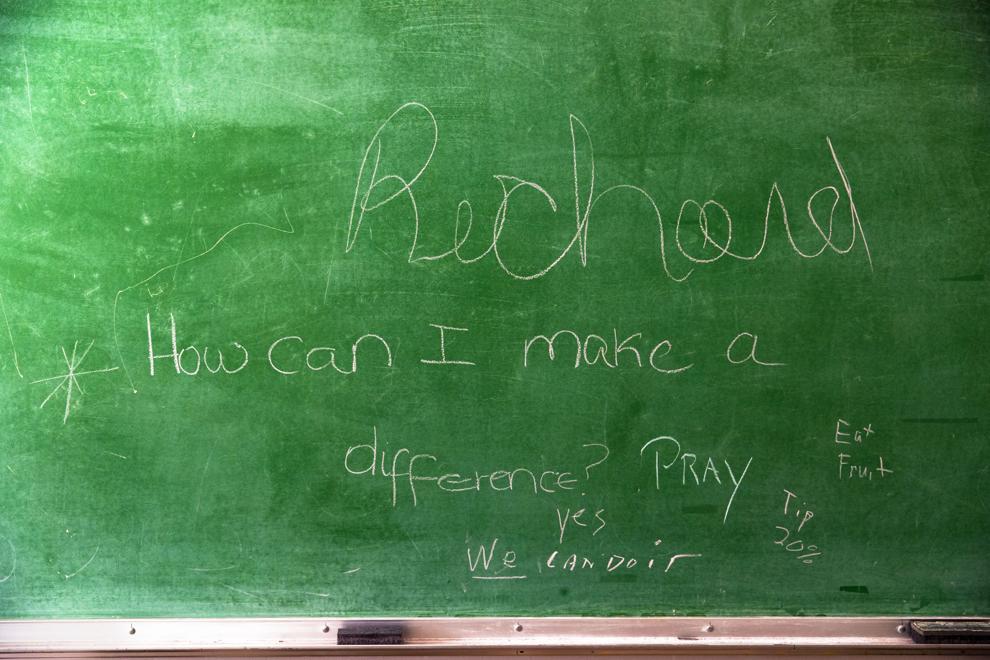 Richard
* How can I make a
difference? PRAY
Eat
Fruit
yes
We CAN DO iT
Tip
20%